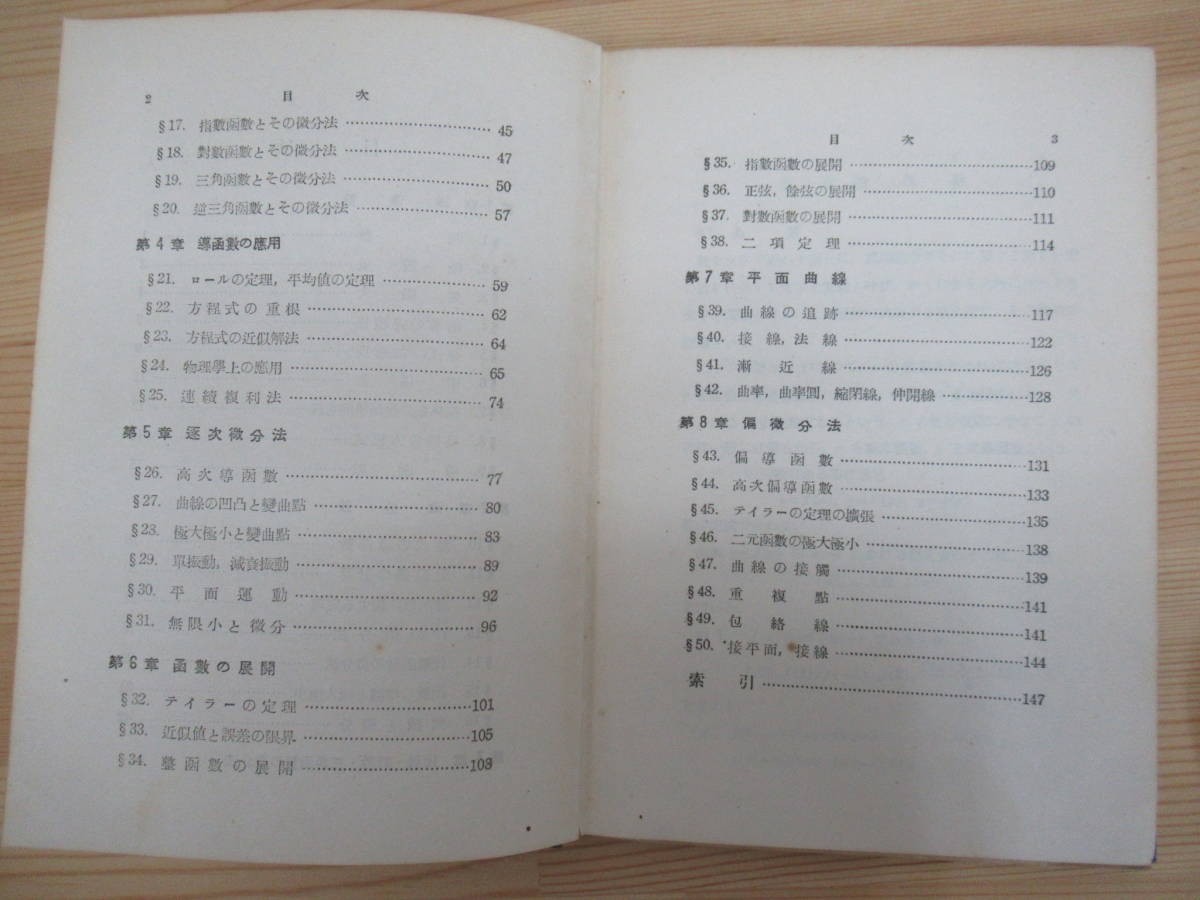 2 目次
§17. 指數函數とその微分法 45
§18. 對數函數とその微分法 47
§19. 三角函數とその微分法 50
§20. 逆三角函數とその微分法 57
第4章 導函數の應用
§21. ロールの定理, 平均値の定理 59
§22. 方程式の重根 62
§23. 方程式の近似解法 64
§24. 物理學上の應用 65
§25. 連續複利法 74
第5章 逐次微分法
§26. 高次導函數 77
§27. 曲線の凹凸と變曲點 80
§28. 極大極小と變曲點 83
§29. 單振動, 減衰振動 89
§30. 平面運動 92
§31. 無限小と微分 96
第6章 函數の展開
§32. テイラーの定理 101
§33. 近似値と誤差の限界 105
§34. 整函數の展開 108
目次 3
§35. 指數函數の展開 109
§36. 正弦, 餘弦の展開 110
§37. 對數函數の展開 111
§38. 二項定理 114
第7章 平面曲線
§39. 曲線の追跡 117
§40. 接線, 法線 122
§41. 漸近線 126
§42. 曲率, 曲率圓, 縮閉線, 伸開線 128
第8章 偏微分法
§43. 偏導函數 131
§44. 高次偏導函數 133
§45. テイラーの定理の擴張 135
§46. 二元函數の極大極小 138
§47. 曲線の接觸 139
§48. 重複點 141
§49. 包絡線 141
§50. 接平面, 接線 144
索引 147